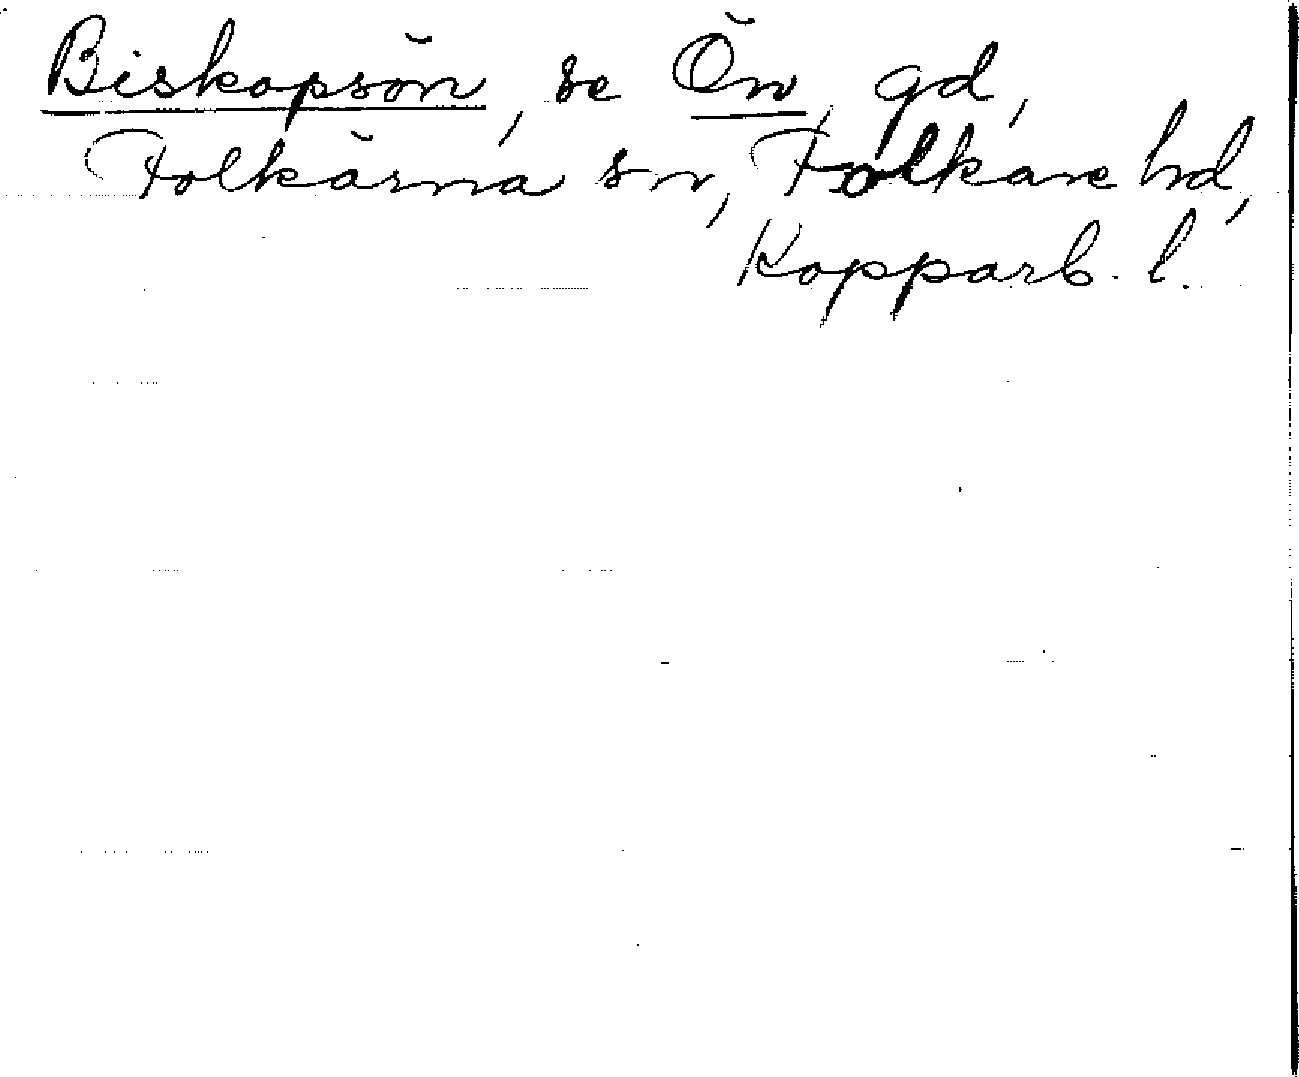 Biskopsön, se Ön, gd,
Folkärna sn, Folkare hd,
Kopparb. l.